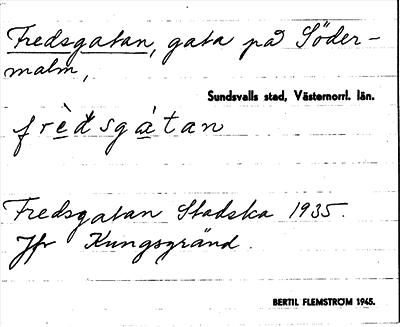 Fredsgatan, gata på Söder-
malm,
Sundsvalls stad, Västernorrl. län.
frèd̀sgàtan
Fredsgatan Stadska 1935.
Jfr Kungsgränd.
BERTIL FLEMSTRÖM 1945.